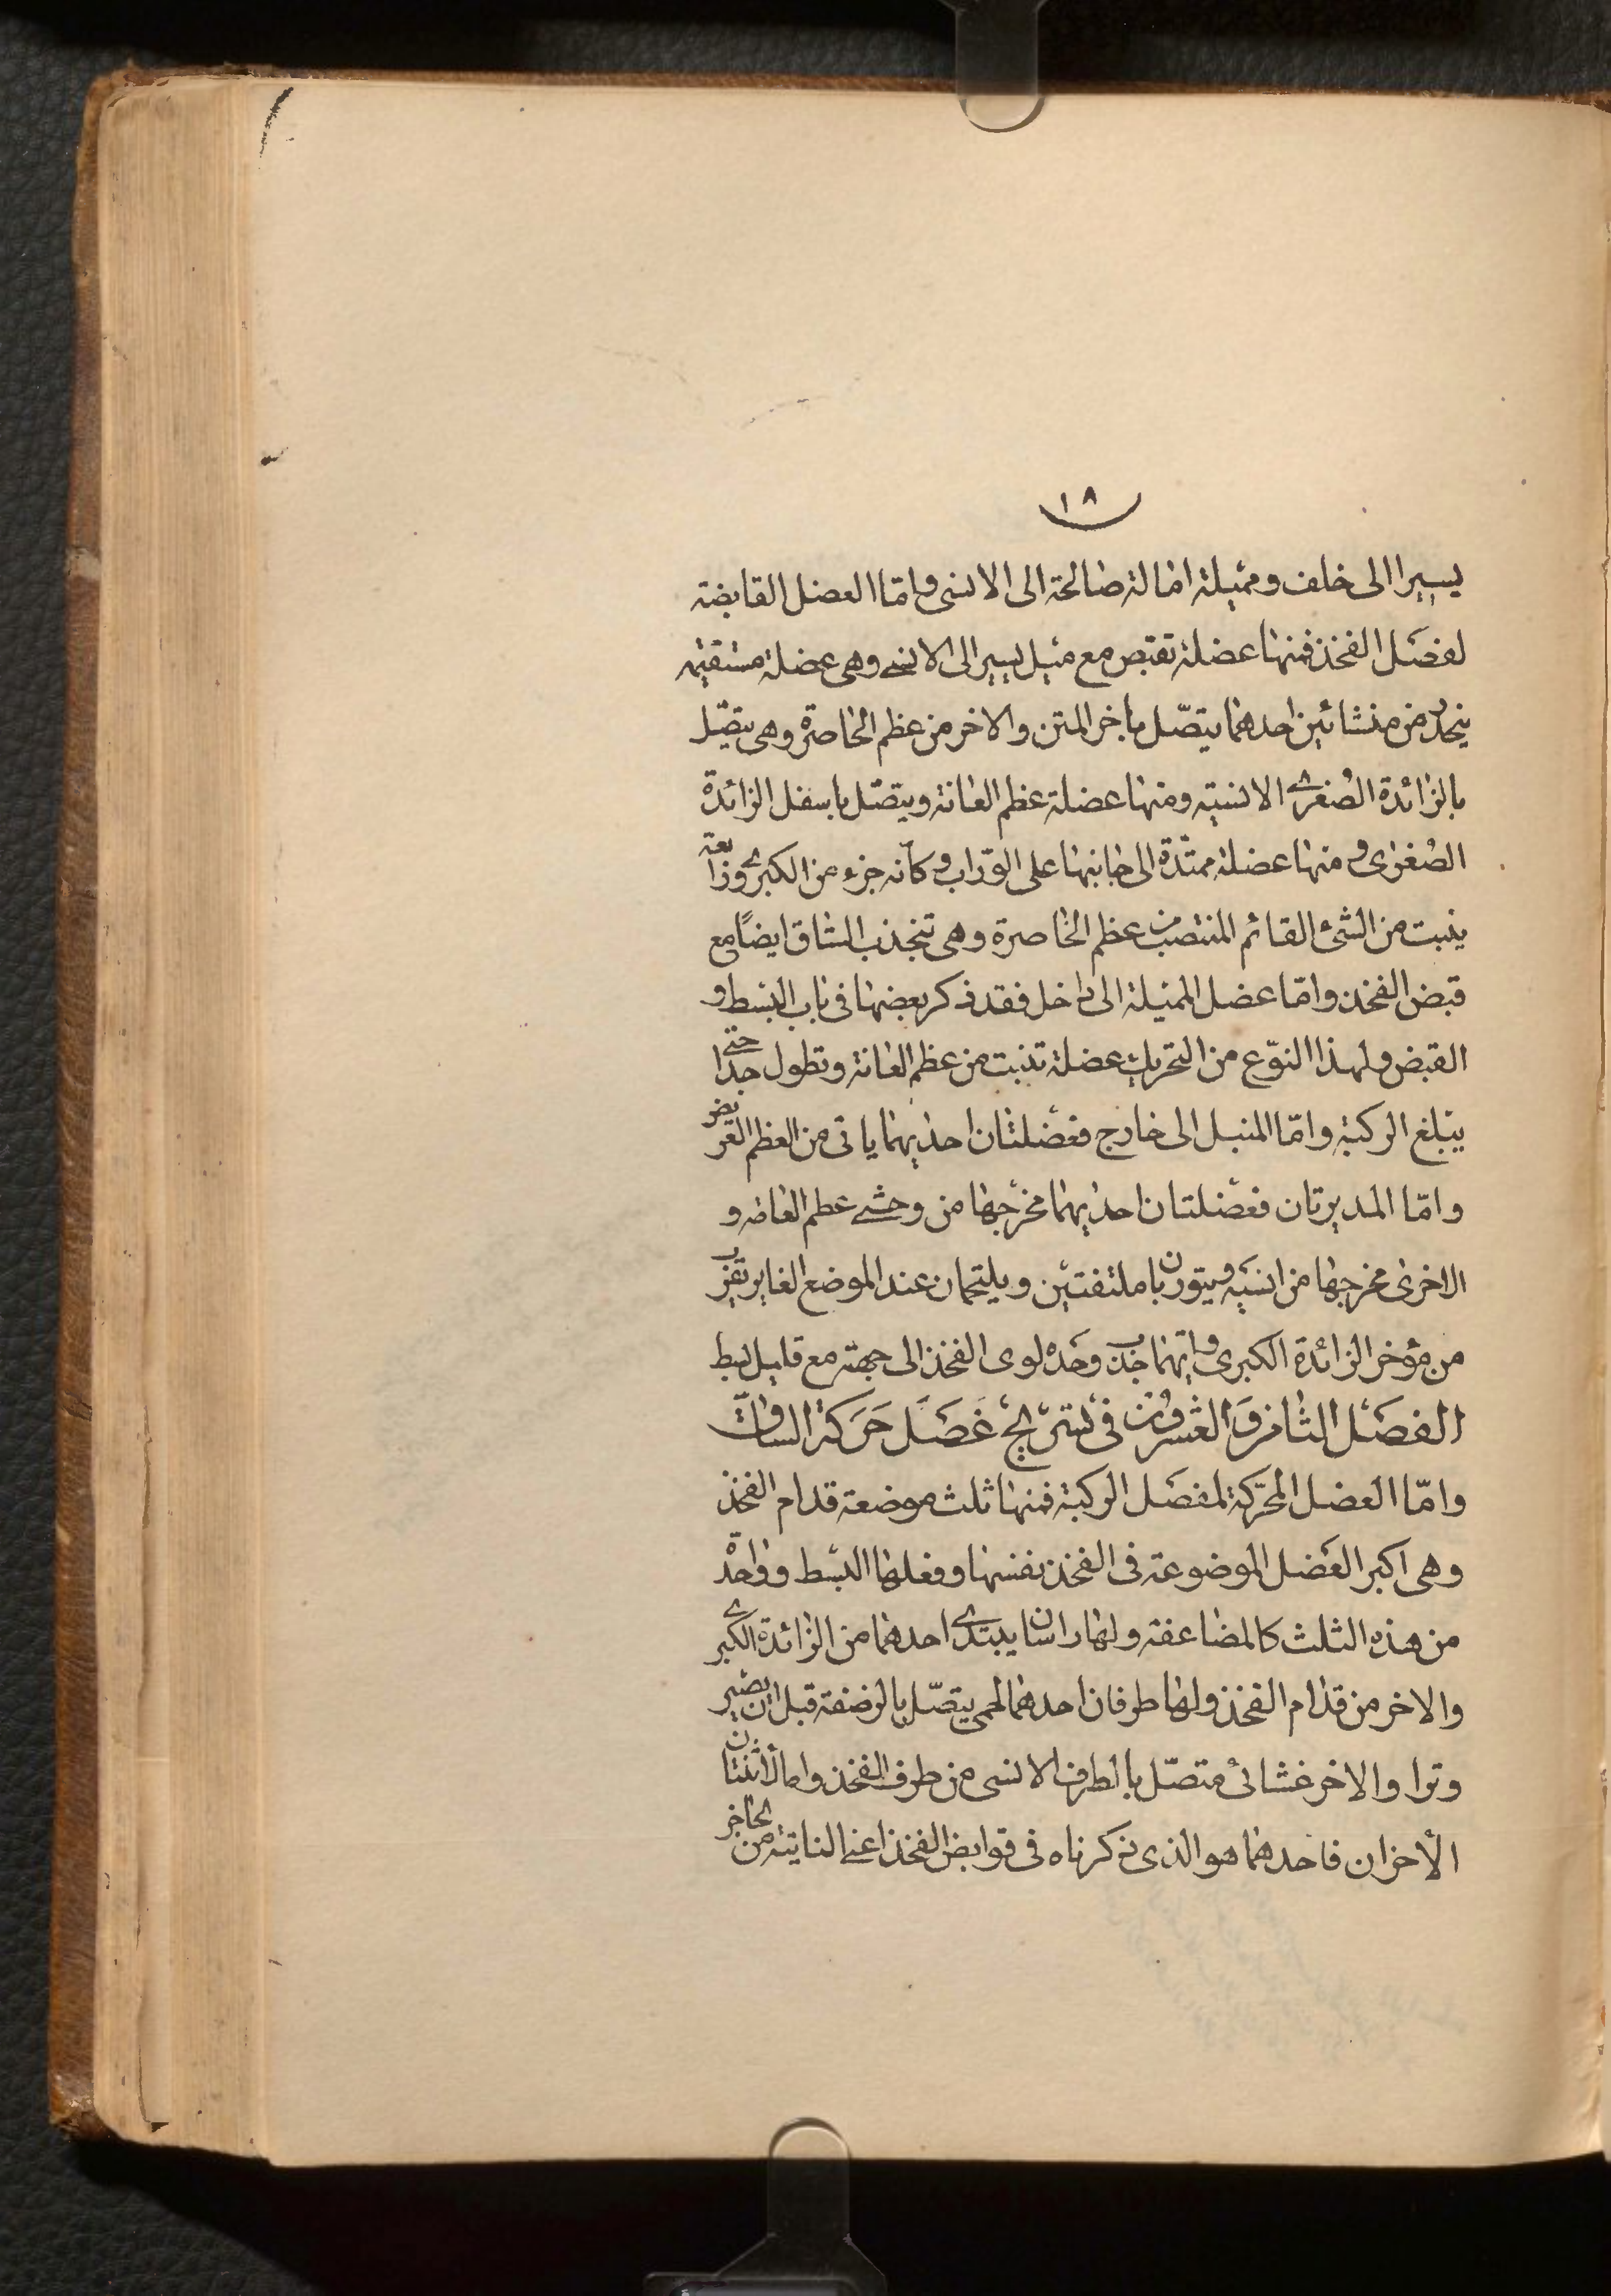 ١٨
يسيرا الى خلف ومميلة امالة صالحة الى الانسى واما العضل القابضة
لفصل الفخذ فمنها عضلة تقبض مع ميل يسير الى الانسى وهى عضلة مستقيمه
ينحدر من منشائين احدهما يتصّل باخر المتن والاخر من عظم الخاصرة وهى يتصّل
بالزائدة الصُغرى الانسيه ومنها عضلة عظم العانة ويتصّل باسفل الزائدة
الصُغرى ومنها عضلة ممتدّة الى جانبها على الورّاب وكأنه جزء من الكبرى ورابعة
ينبت من الشئ القائم المنتصب من عظم الخاصرة وهى تنجذب الساق ايضًا مع
قبض الفخذ وامّا عضل المميلة الى داخل فقد ذكر بعضها فى باب البسط و
القبض ولهذا النوّع من التحريك عضلة تنبت من عظم العانة وتطول جدّا حتى
يبلغ الركبة وامّا المنبل الى خارج فعضلتان احديهما ياتى من العظم العريض
وامّا المديرتان فعضلتان احديهما مخرجها من وحشى عظم العانه و
الاخرى مخرجها من انسيّه ويتوربان ملتفتين ويلتحمان عند الموضع الغاير بقرب
من مؤخر الزائدة الكبرى وايتهما جذب وحَده لوى الفخذ الى جهته مع قليل بسط
الفصَل الثامن وَالعشرون فى تشريح عَضَل حَرَكة الساق
وامّا العضل المحرّكة لمفصَل الركبة فمنها ثلث موضعة قدام الفخذ
وهى اكبر العَضل الموضوعة فى الفخذ نفسها وفعلها البسط وواحدة
من هذه الثلث كالمضاعفة ولها راسان يبتدى احدهما من الزائدة الكبرى
والاخر من قدام الفخذ ولها طرفان احدهما لحمى يتصّل بالرضفة قبل ان يصير
وترا والاخر غشائى متصّل بالطرف الانسى من طرف الفخذ واما الأثنتان
الأخران فاحدهما هو الذى ذكرناه فى قوابض الفخذ اعنى النابتة من الحاجز